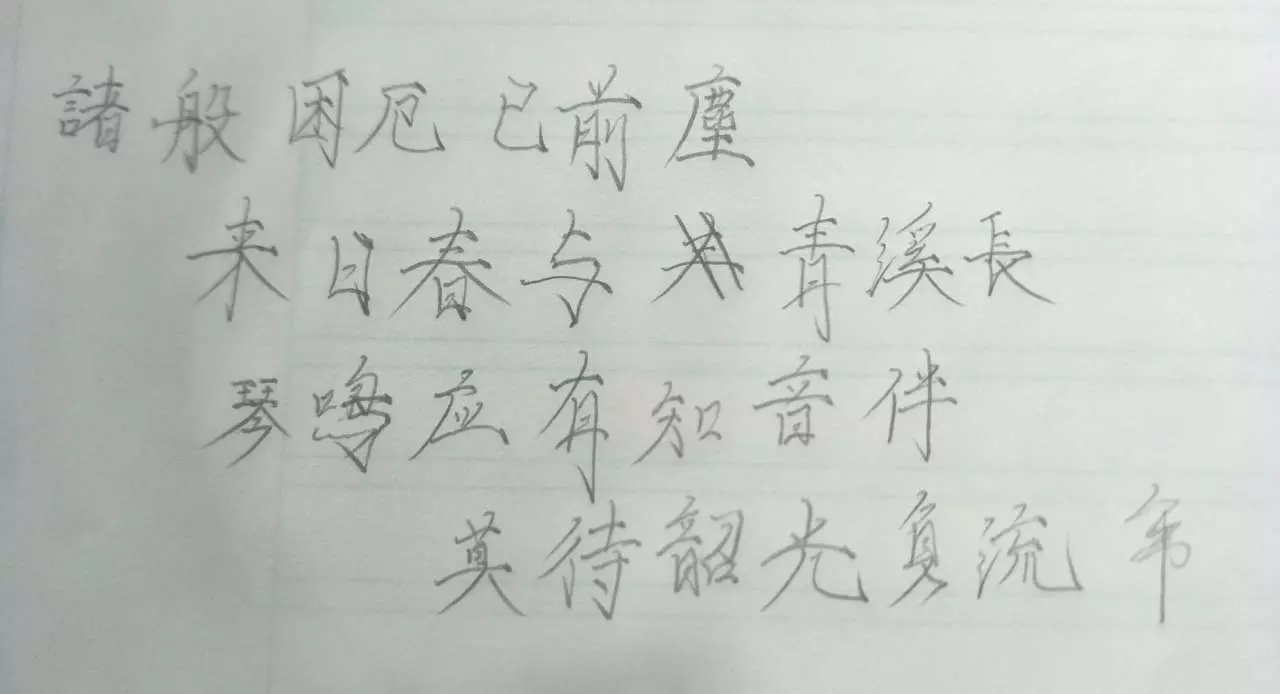 諸般困厄已前塵
来日春与青溪長
琴鳴应有知音伴
莫待韶光負流年